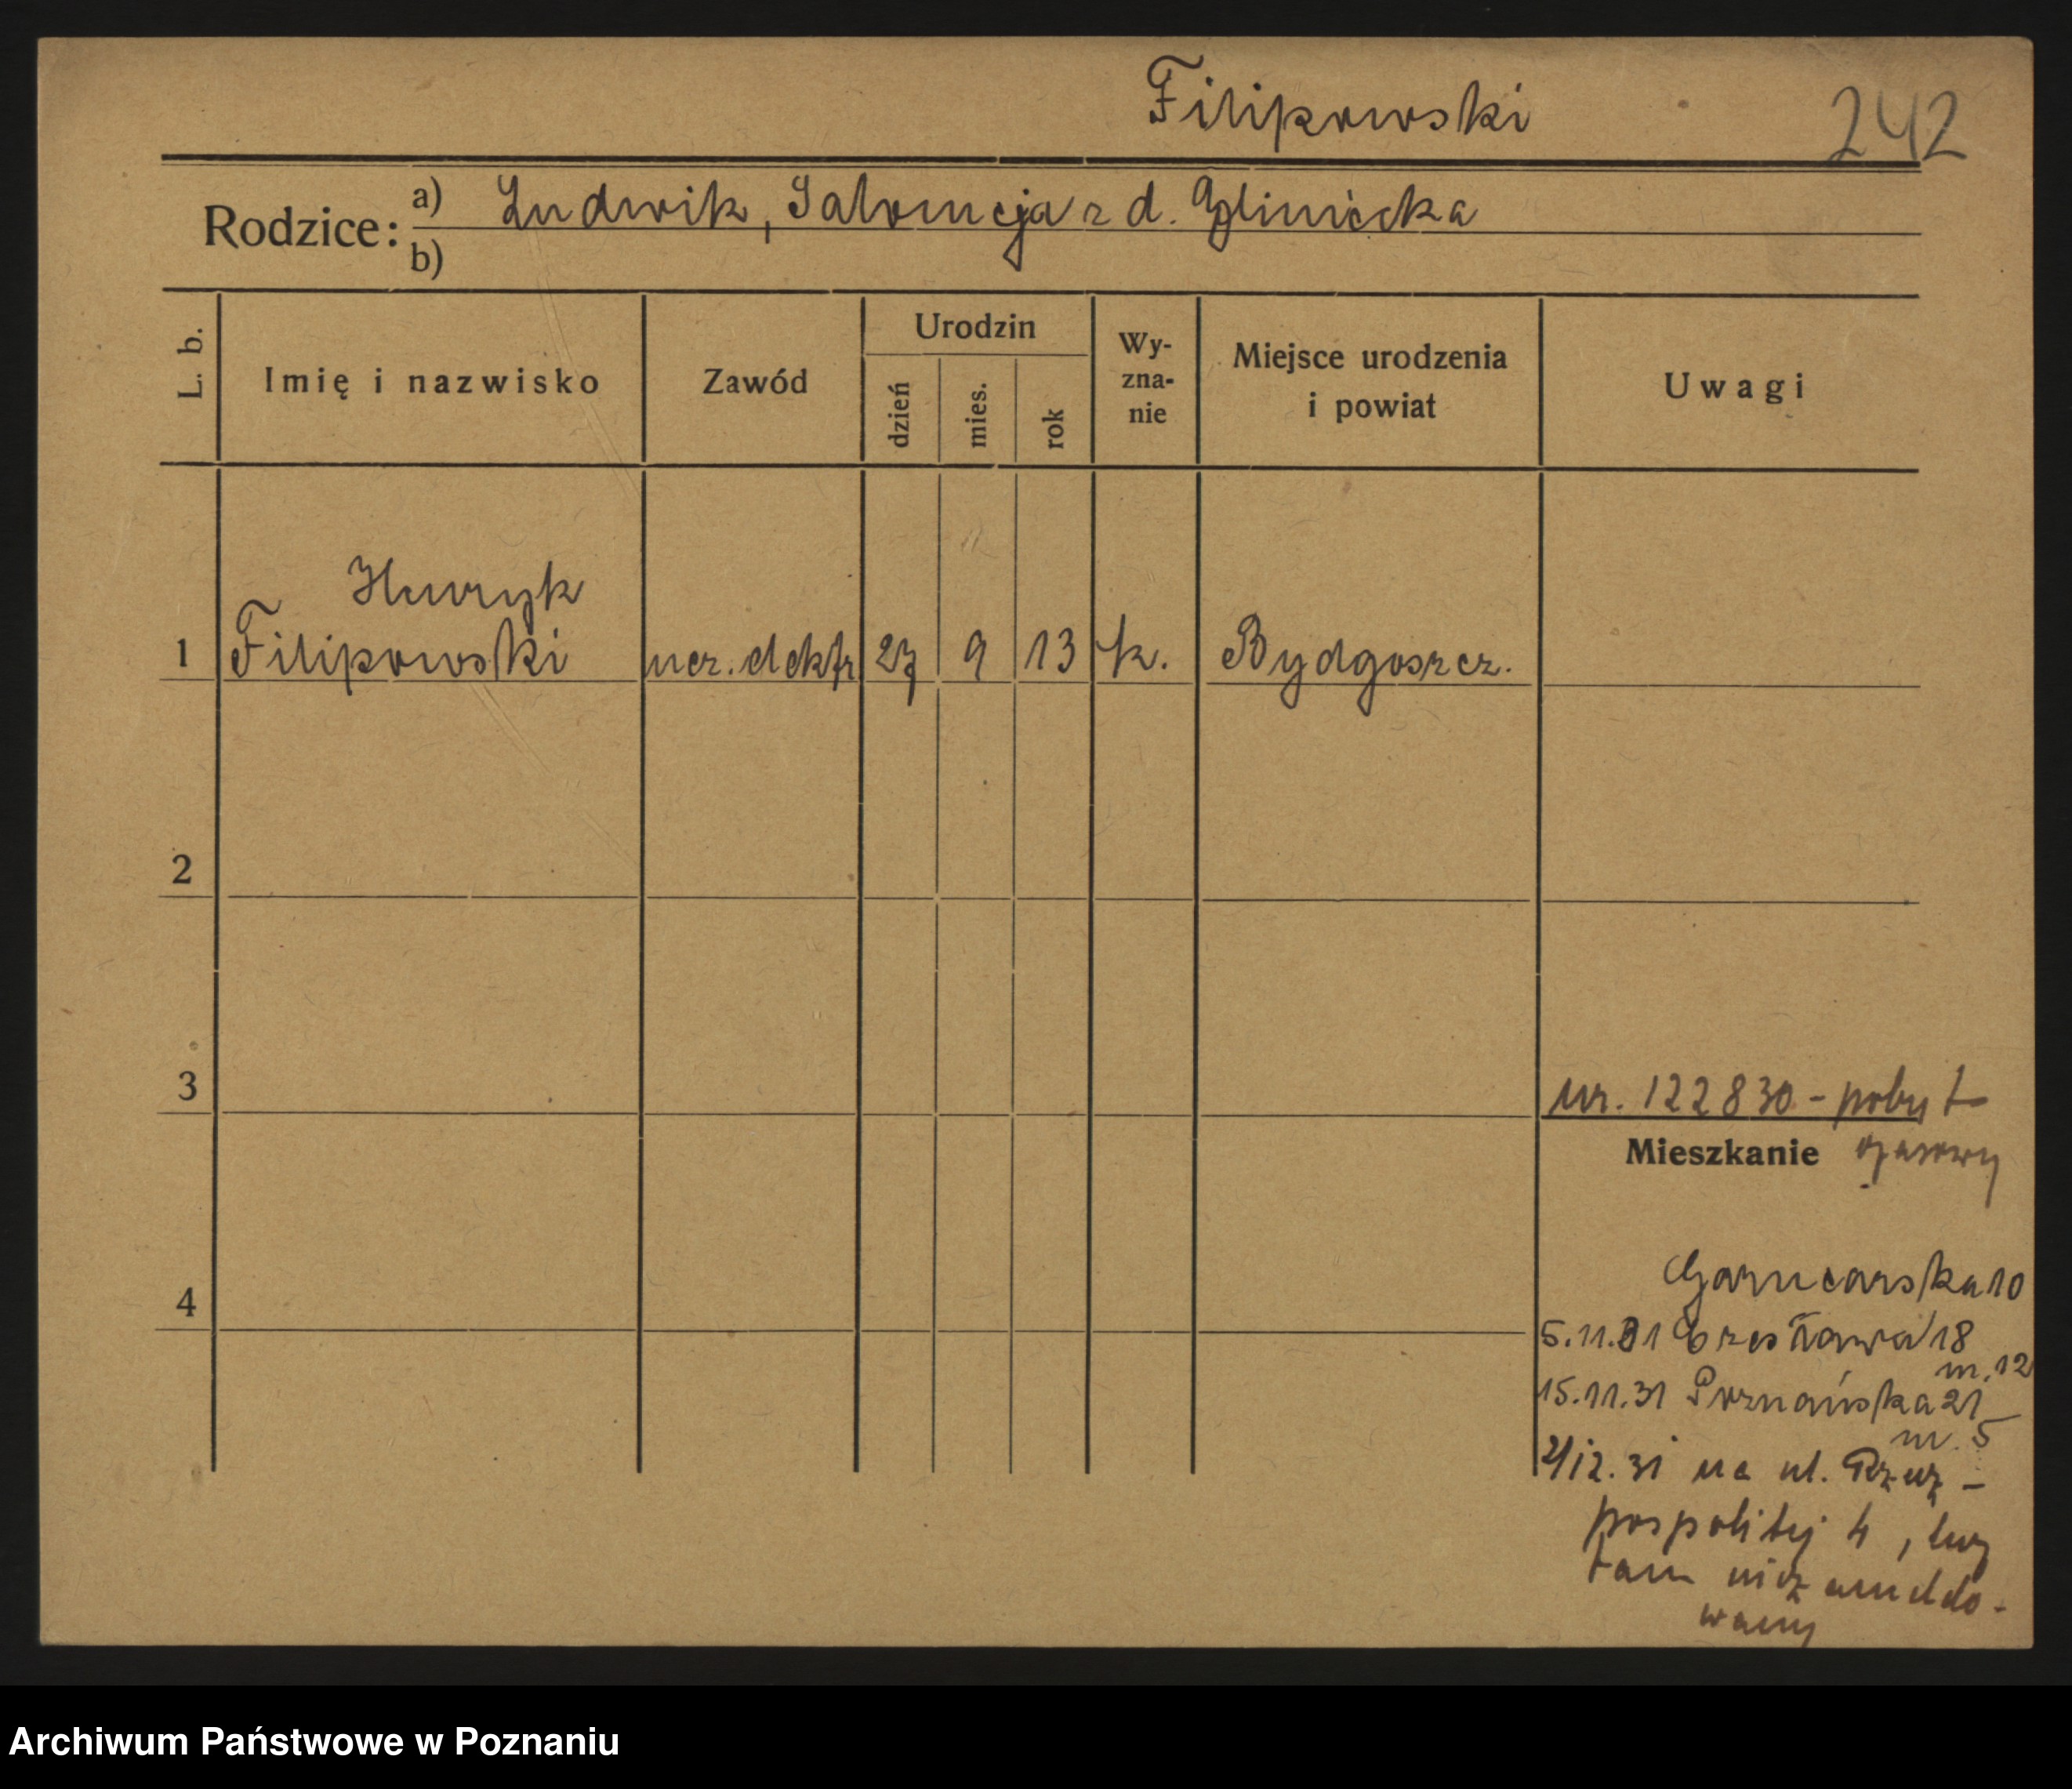 Filipowski
242
Rodzice: a) Ludwik, Salomeja z d. Glinicka
b)
L. b. Imię i nazwisko Zawód Urodzin dzień mies. rok Wy-zna-nie Miejsce urodzenia i powiat Uwagi
Henryk
1 Filipowski ucz. elektr 27 9 13 k. Bydgoszcz.
2
3 nr. 122830 - pobyt
Mieszkanie czasowy
Garncarska 10
4
5.11.31 18
m. 12
15.11.31 Poznańska 21
m. 5
2/12.31 na ul. Rzecz-
pospolitej 4, lecz
tam niezameldo-
wany
Archiwum Państwowe w Poznaniu